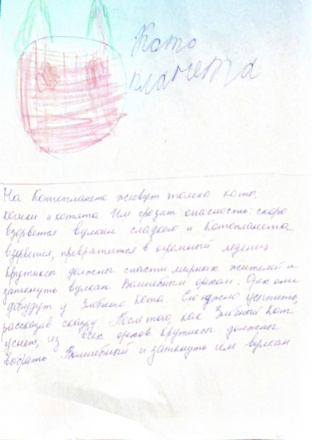 Кото
планета
На Котопланете живут только коты,
кошки и котята. Им грозит опасность: скоро
взорвется вулкан сладкого и котопланета
взорвется, превратится в огромный леденец
Крутиксы должны спасти мирных жителей и
заткнуть вулкан Волшебным орехом. Орех они
добудут у Злобного Кота. Его нужно усыпить,
рассказав сказку. После того, как Злобный Кот
уснет, из всех орехов крутиксы должны
выбрать Волшебный и заткнуть им вулкан